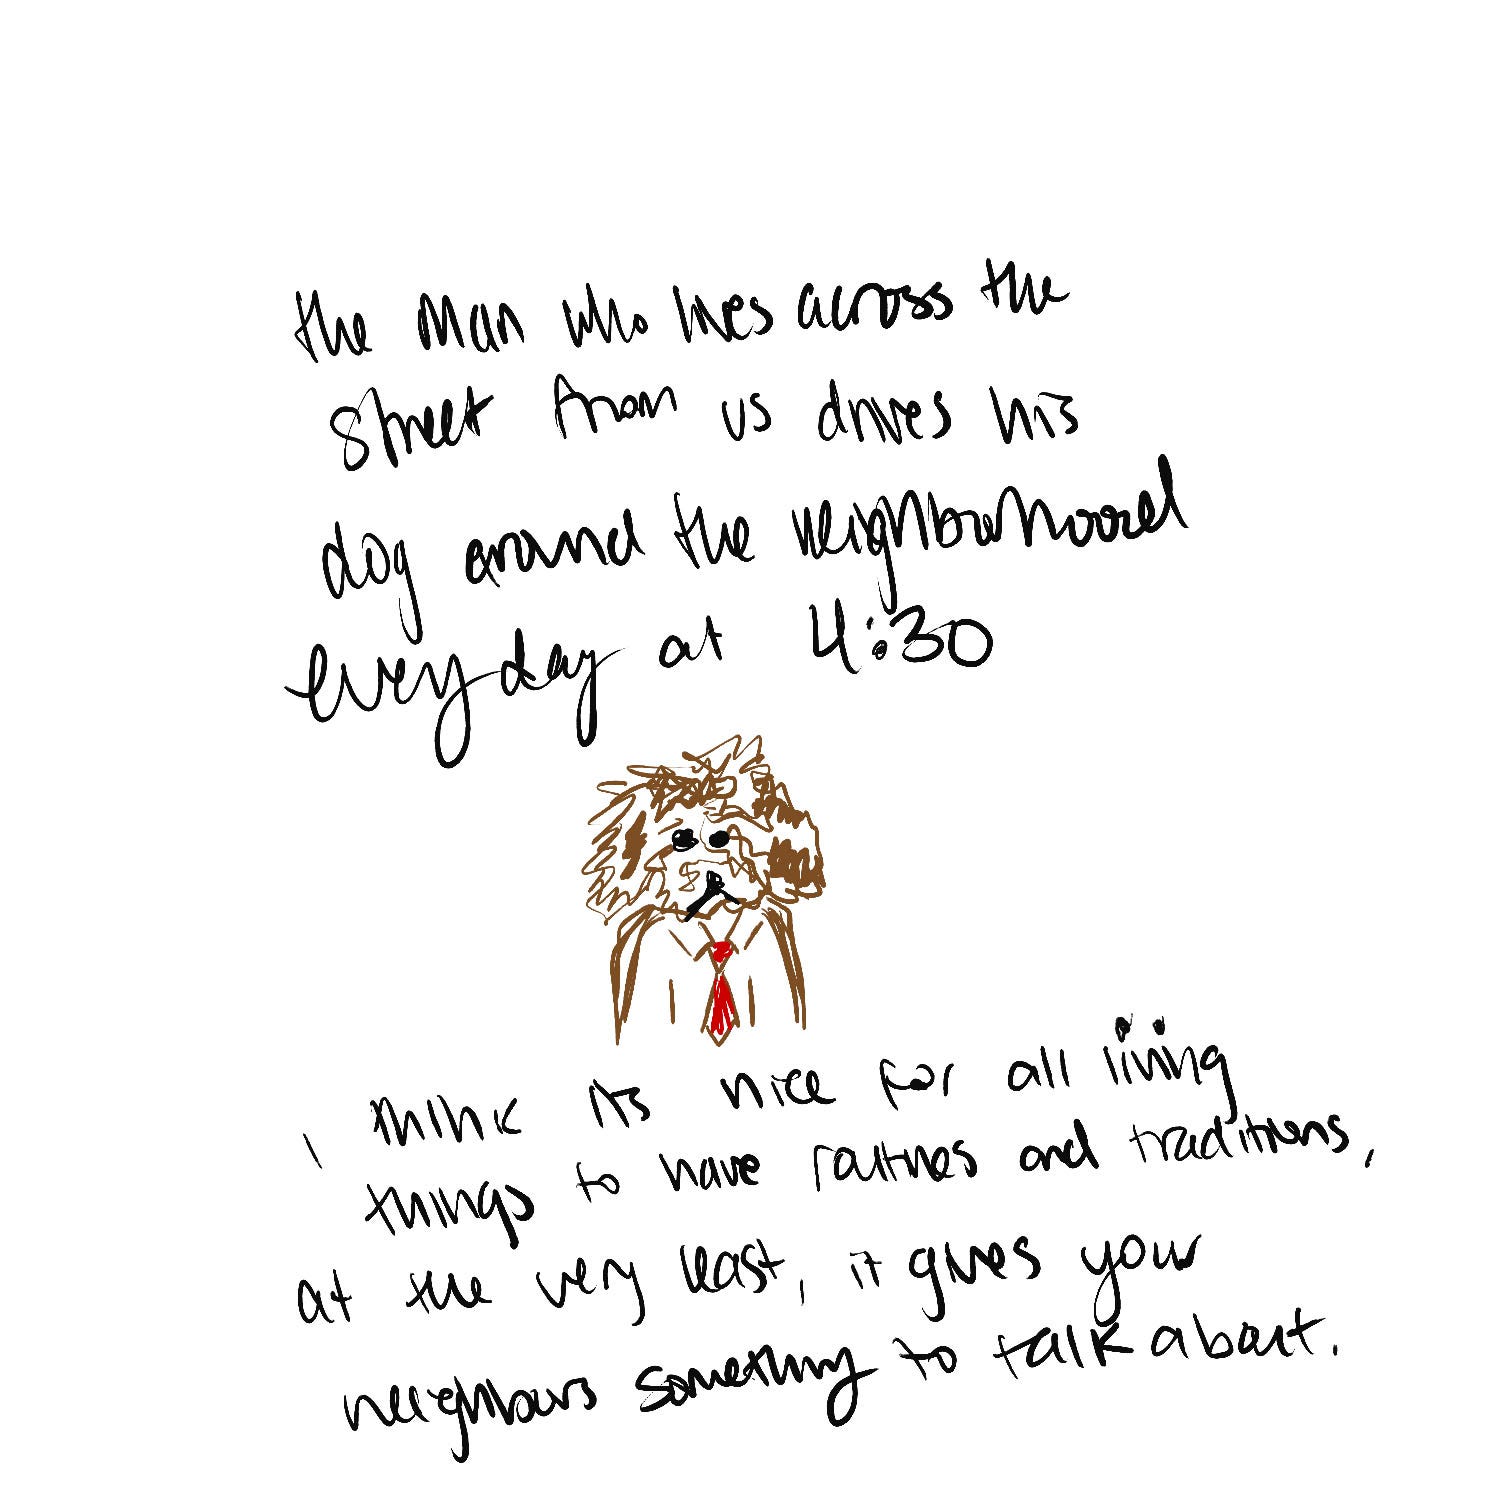 the man who lives across the
street from us drives his
dog around the neighbourhood
everyday at 4:30
i think its nice for all living
things to have routines and traditions,
at the very least, it gives your
neighbours something to talk about.